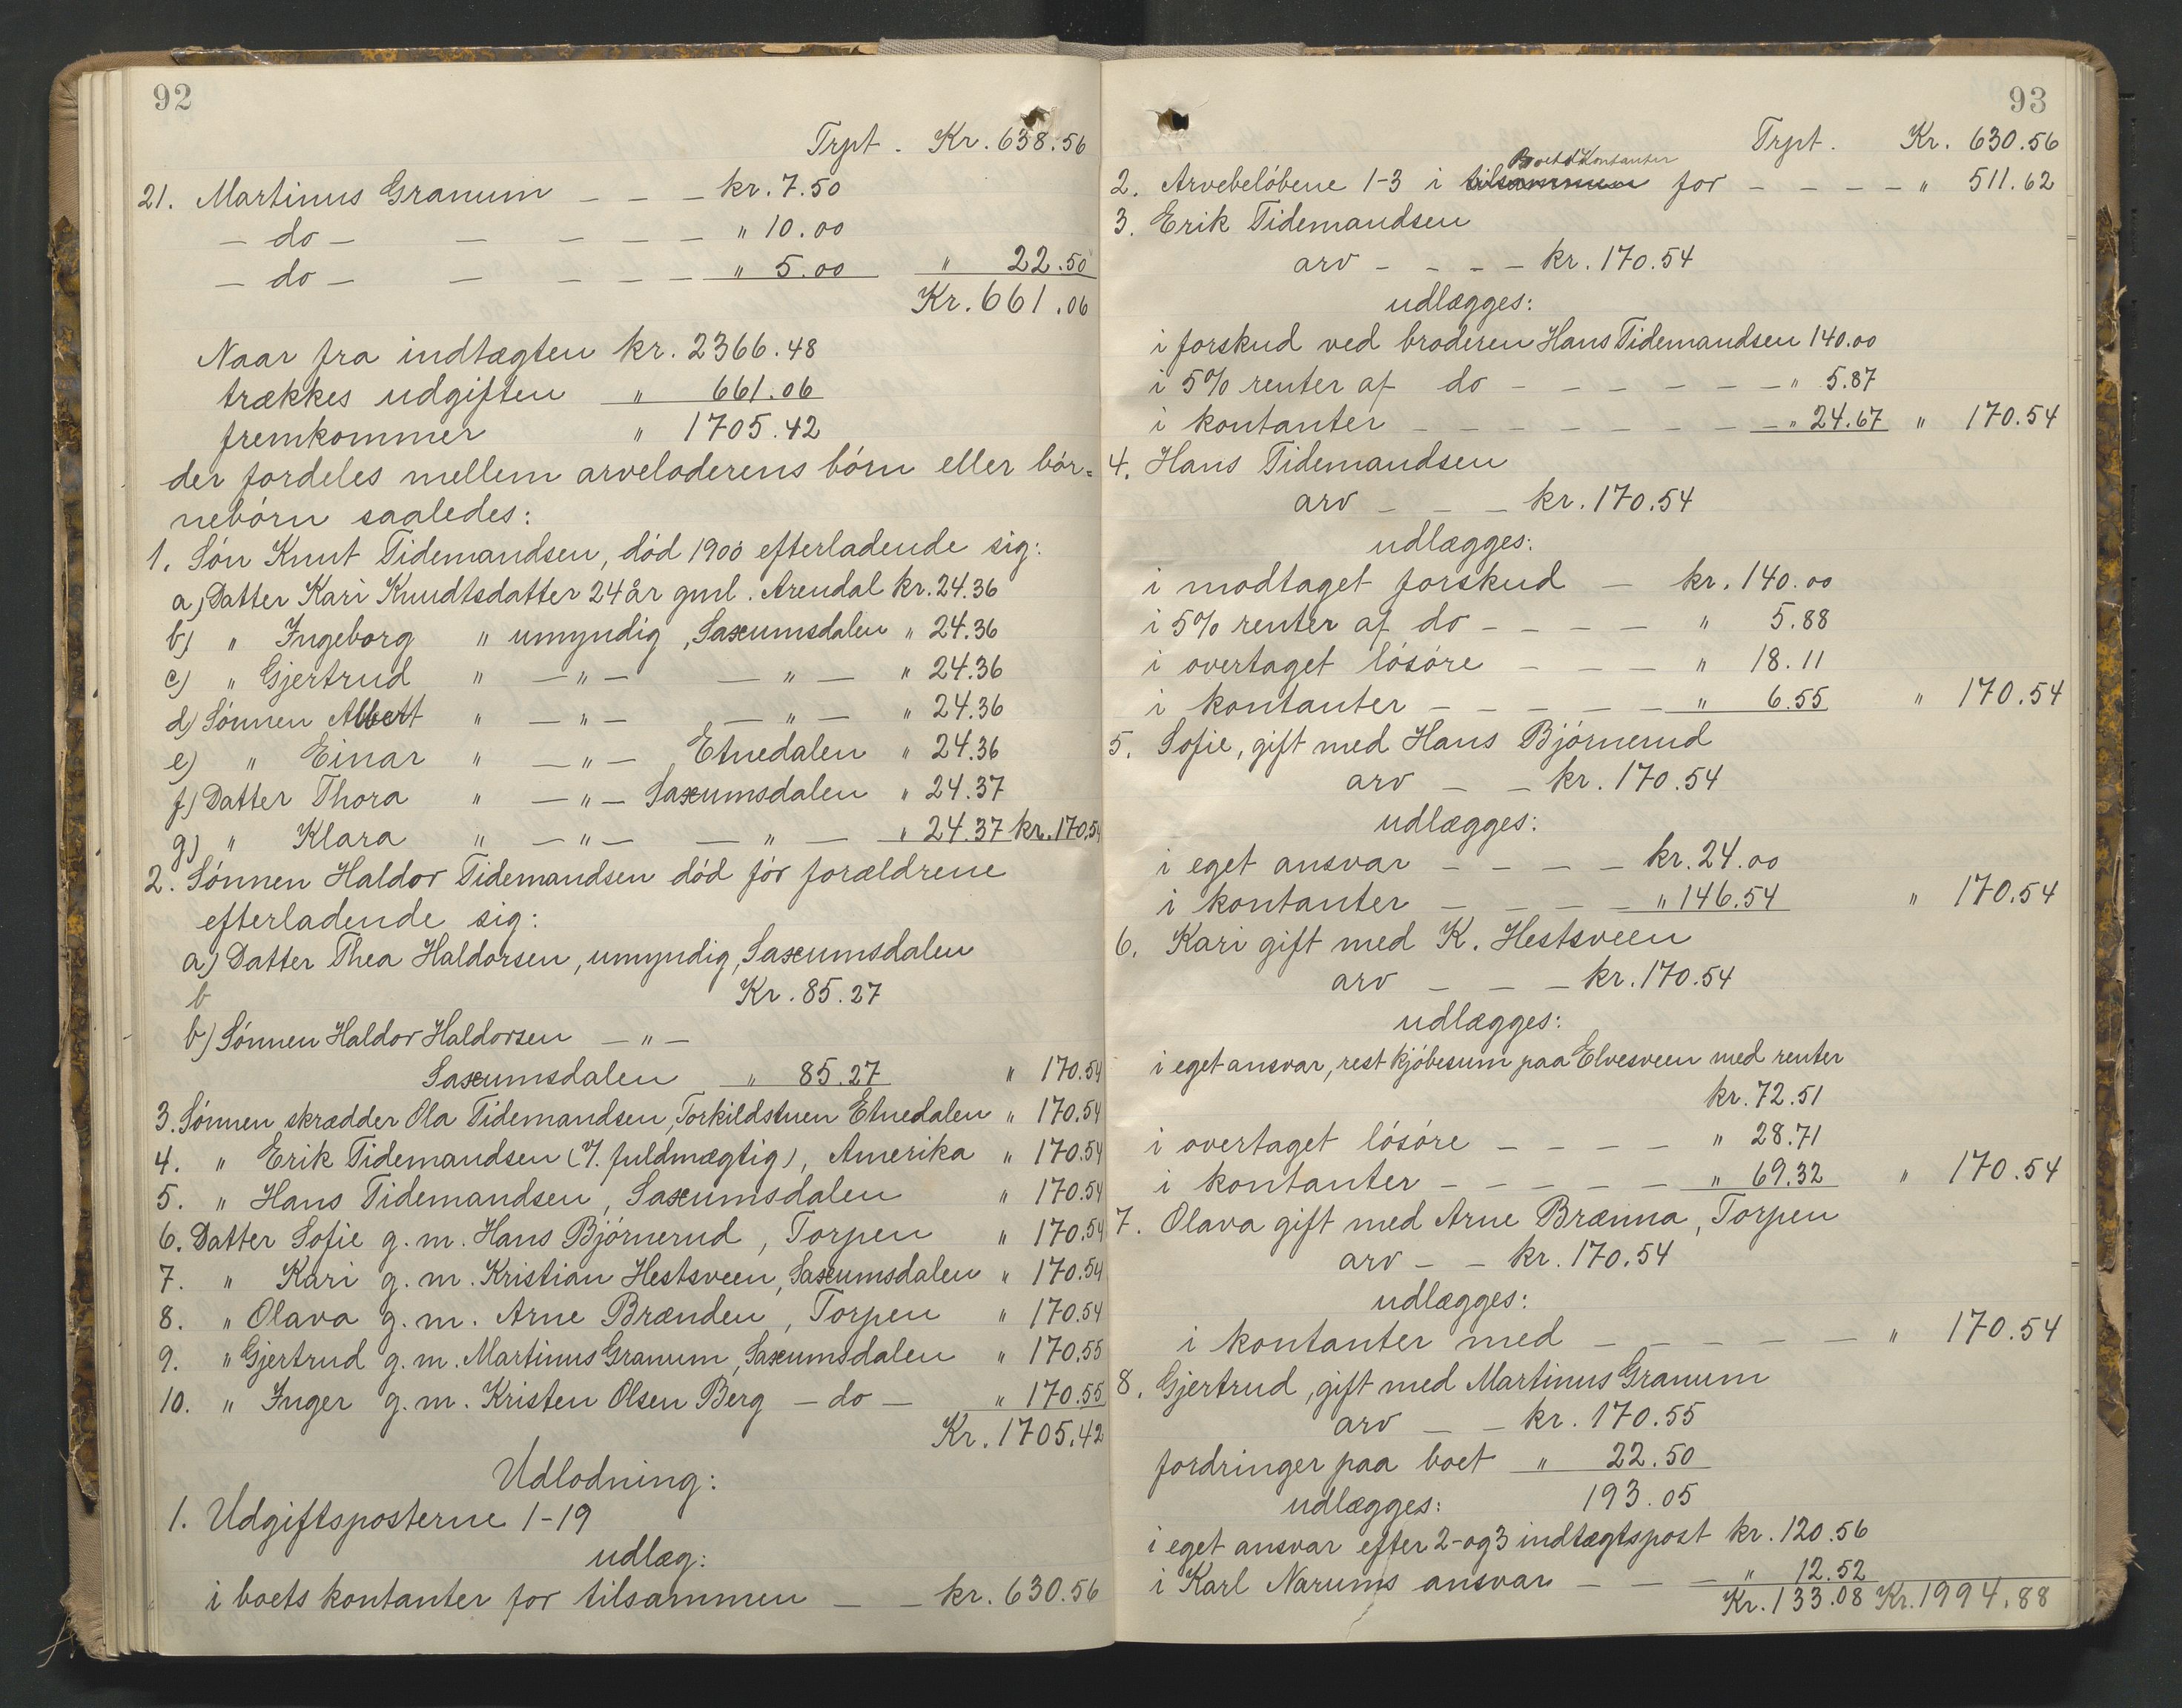 92
Trpt. Kr. 638.56
21. Martinus Granum — — — kr. 7.50
— do — — — — — " 10.00
— do — — — — — " 5.00 " 22.50
Kr. 661.06
Naar fra indtægten kr. 2366.48
trækkes udgiften " 661.06
fremkommer " 1705.42
der fordeles mellem arveladerens börn eller bör=
nebörn saaledes:
1. Sön Knut Tidemandsen, död 1900 efterladende sig:
a) Datter Kari Knudtsdatter 24 år gml. Arendal kr. 24.36
b) " Ingeborg " umyndig, Saxumsdalen " 24.36
c) " Gjertrud " — " — — " — " 24.36
d) Sönnen Albert " — " — — " — " 24.36
e) " Einar " — " — Etnedalen " 24.36
f) Datter Thora " — " — Saxumsdalen " 24.37
g) " Klara " — " — — " — " 24.37 kr. 170.54
2. Sönnen Haldor Tidemandsen död för forældrene
efterladende sig:
a) Datter Thea Haldorsen, umyndig, Saxumsdalen
b Kr. 85.27
b) Sönnen Haldor Haldorsen — " —
Saxumsdalen " 85.27 " 170.54
3. Sönnen skrædder Ola Tidemandsen, Torkildstuen Etnedalen " 170.54
4. " Erik Tidemandsen (v/. fuldmægtig), Amerika " 170.54
5. " Hans Tidemandsen, Saxumsdalen " 170.54
6. Datter Sofie g. m. Hans Björnerud, Torpen " 170.54
7. " Kari g. m. Kristian Hestsveen, Saxumsdalen " 170.54
8. " Olava g. m. Arne Brænden, Torpen " 170.54
9. " Gjertrud g. m. Martinus Granum, Saxumsdalen " 170.55
10. " Inger g. m. Kristen Olsen Berg — do — " 170.55
Kr. 1705.42
Udlodning:
1. Udgiftsposterne 1-19
udlæg:
i boets kontanter for tilsammen — — kr. 630.56
93
Trpt. Kr. 630.56
Boets Kontanter
2. Arvebelöbene 1-3 i tilsammen for — — — — " 511.62
3. Erik Tidemandsen
arv — — — — kr. 170.54
udlægges:
i forskud ved broderen Hans Tidemandsen 140.00
i 5% renter af do — — — — — — " 5.87
i kontanter — — — — — — — — " 24.67 " 170.54
4. Hans Tidemandsen
arv — — — kr. 170.54
udlægges:
i modtaget forskud — kr. 140.00
i 5% renter af do — — — — " 5.88
i overtaget lösöre — — — " 18.11
i kontanter — — — — — " 6.55 " 170.54
5. Sofie, gift med Hans Björnerud
arv — — kr. 170.54
udlægges:
i eget ansvar — — — — kr. 24.00
i kontanter — — — — " 146.54 " 170.54
6. Kari gift med K. Hestsveen
arv — — — kr. 170.54
udlægges:
i eget ansvar, rest kjöbesum paa Elvesveen med renter
kr. 72.51
i overtaget lösöre — — — — " 28.71
i kontanter — — — — — " 69.32 " 170.54
7. Olava gift med Arne Brænna, Torpen
arv — — kr. 170.54
udlægges:
i kontanter med — — — — — " 170.54
8. Gjertrud, gift med Martinus Granum
arv — — kr. 170.55
fordringer paa boet " 22.50
udlægges: 193.05
i eget ansvar efter 2- og 3 indtægtspost kr. 120.56
i Karl Narums ansvar — — — " 12.52
Kr. 133.08 Kr. 1994.88